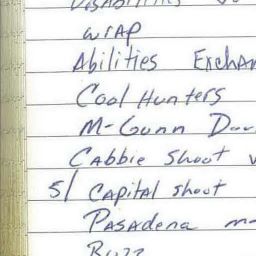 WRAP
Abilities
Cool Hunters
M-Gunn
Cabbie Shoot
5/ Capital Shoot
Pasadena
Buzz